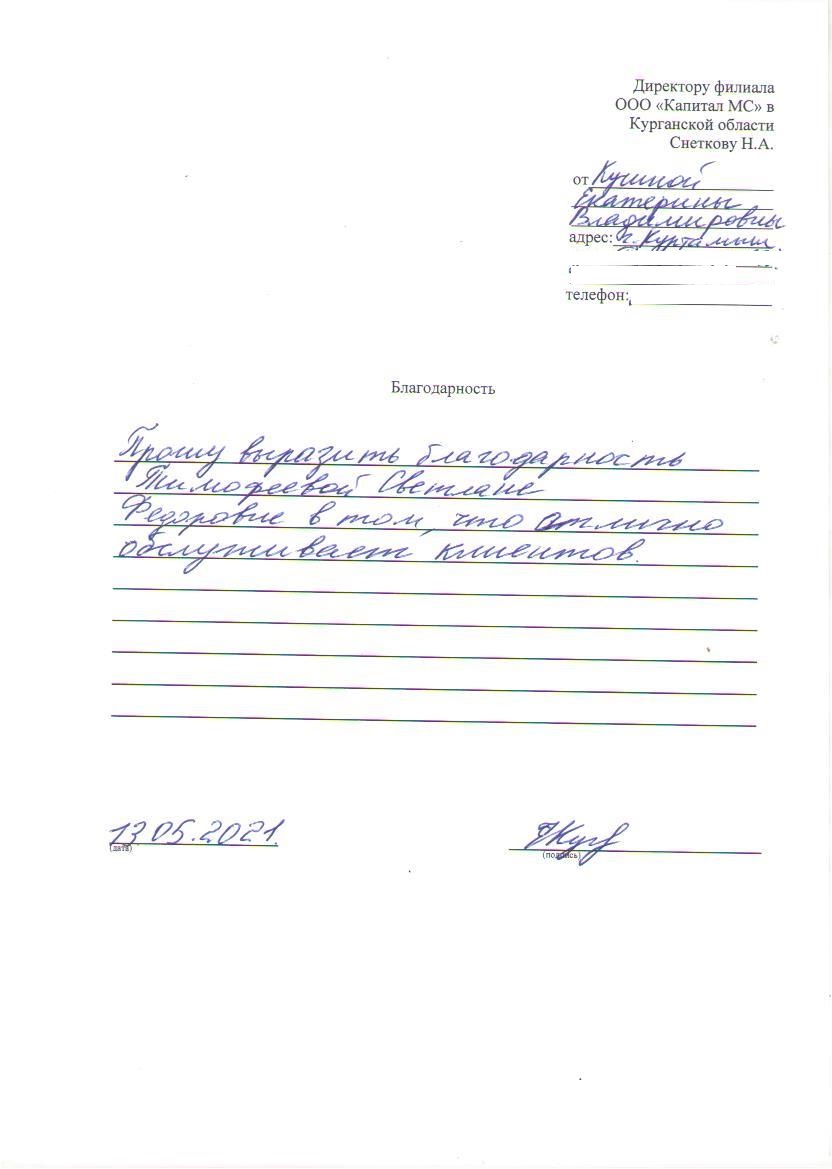 Директору филиала
ООО «Капитал МС» в
Курганской области
Снеткову Н.А.
от Кушной
Екатерины
Владимировны
адрес: г. Куртамыш
телефон:
Благодарность
Прошу выразить благодарность
Тимофеевой Светлане
Федоровне в том, что отлично
обслуживает клиентов.
13.05.2021.
(дата)
(подпись)